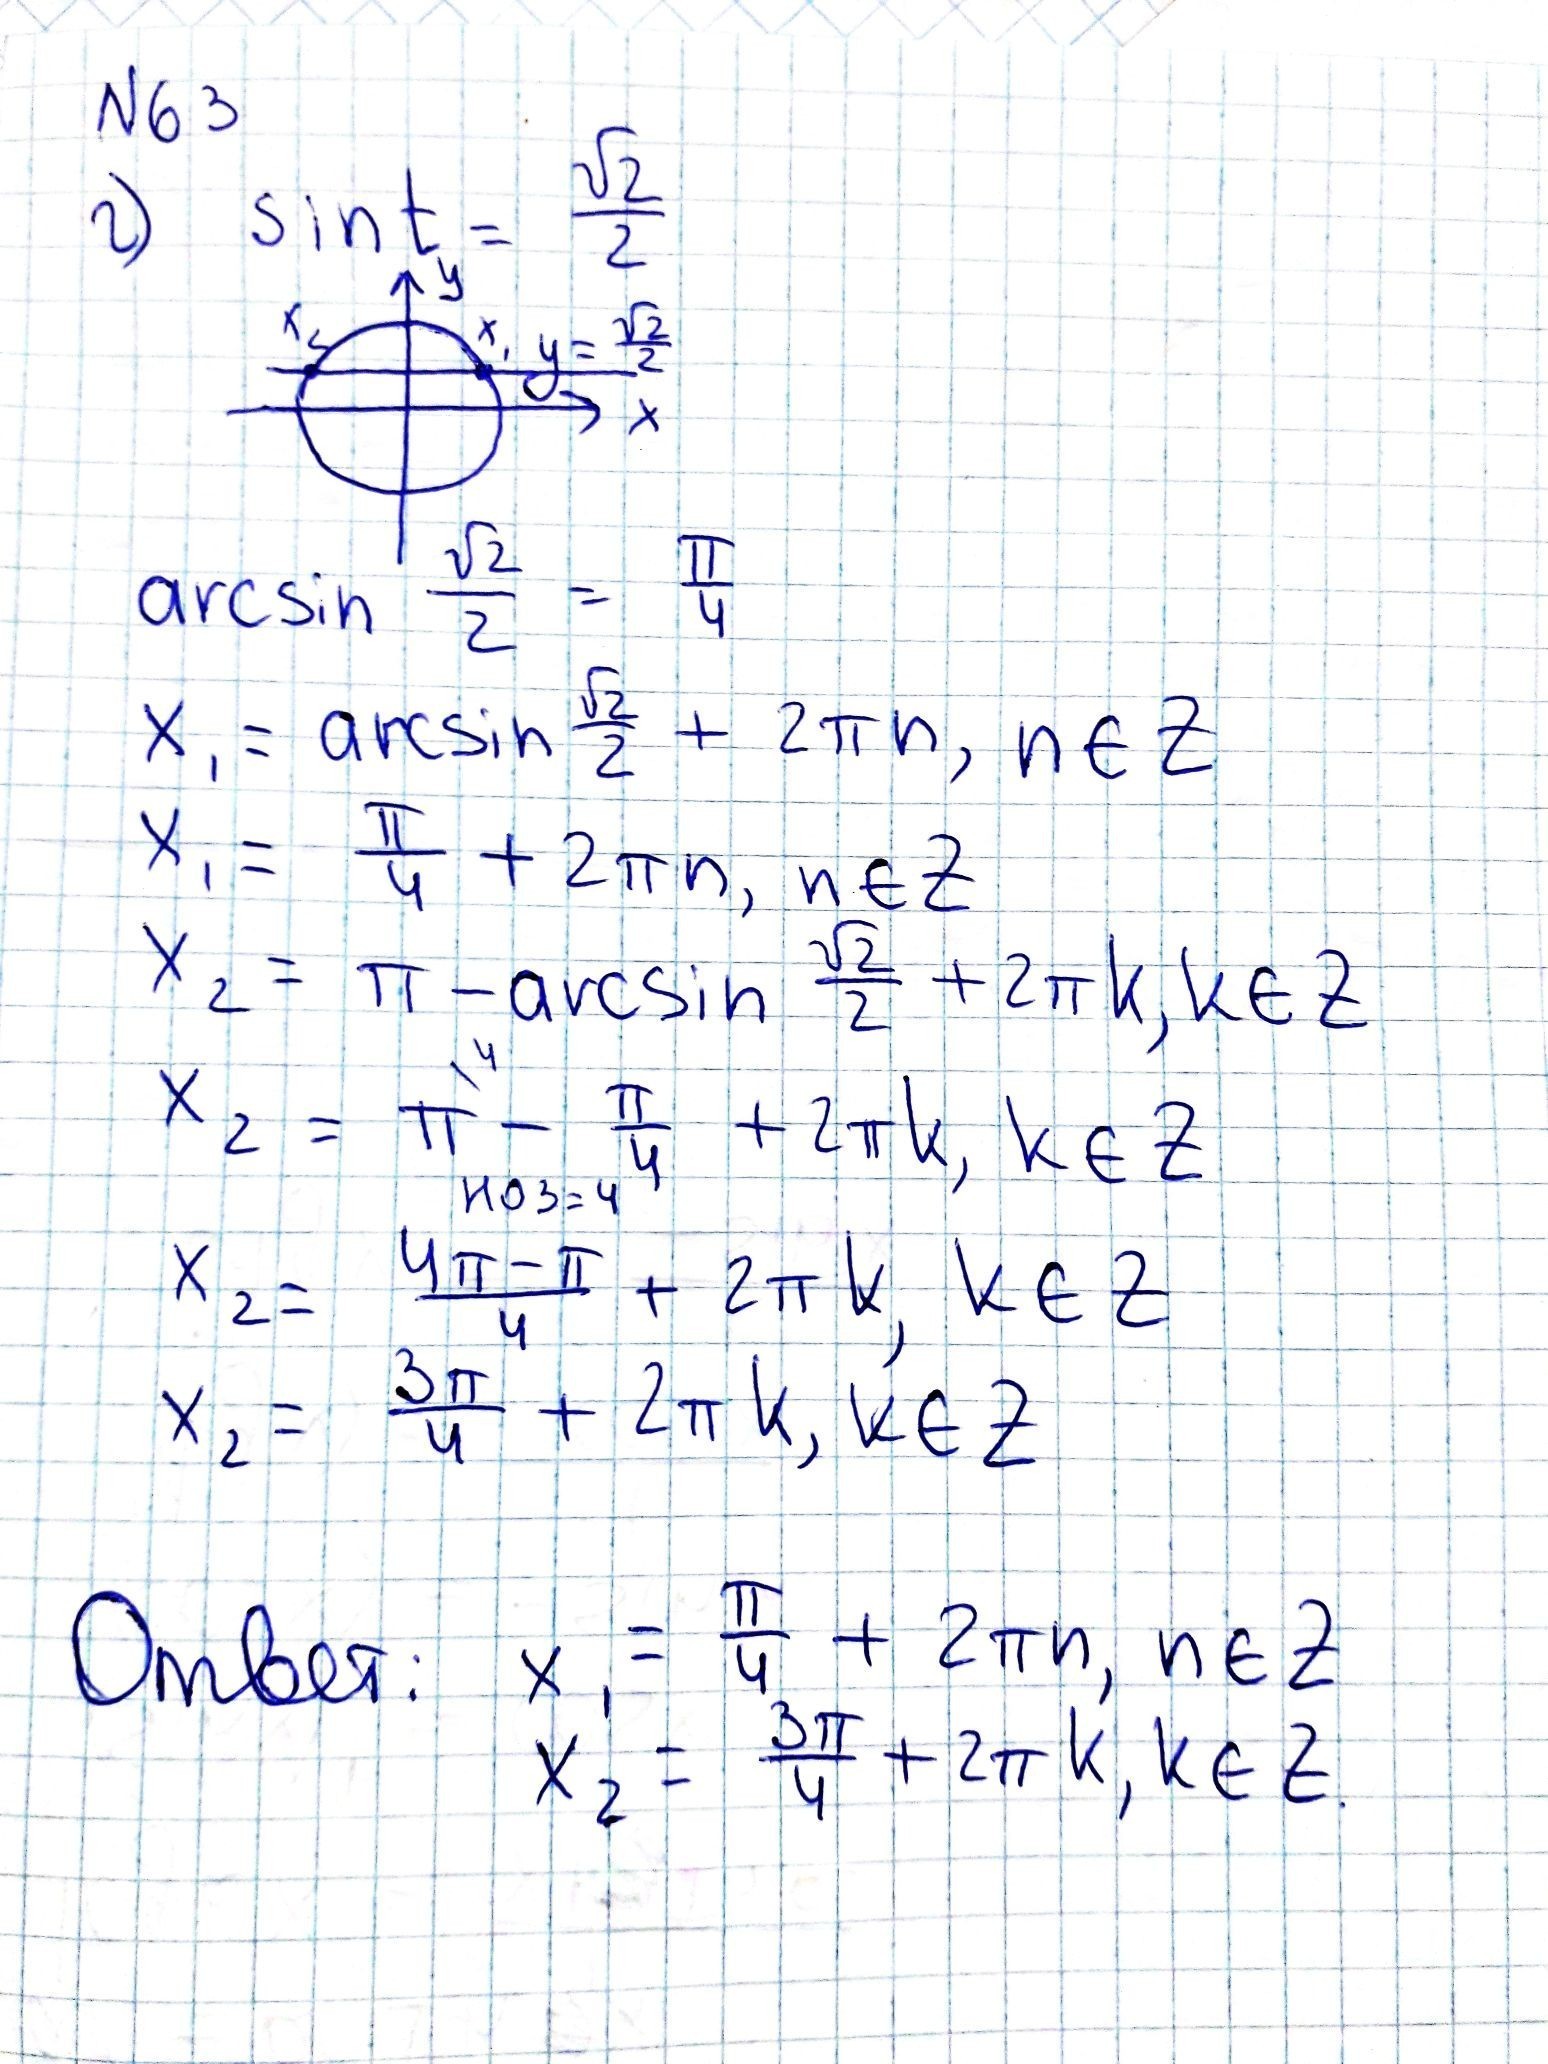 N63
г) sin t = √2/2
y
x₂ x₁ y = √2/2
x
arcsin √2/2 = π/4
x₁ = arcsin √2/2 + 2πn, n∈Z
x₁ = π/4 + 2πn, n∈Z
x₂ = π - arcsin √2/2 + 2πk, k∈Z
x₂ = π\4 - π/4 + 2πk, k∈Z
НОЗ=4
x₂ = (4π-π)/4 + 2πk, k∈Z
x₂ = 3π/4 + 2πk, k∈Z
Ответ: x₁ = π/4 + 2πn, n∈Z
x₂ = 3π/4 + 2πk, k∈Z.